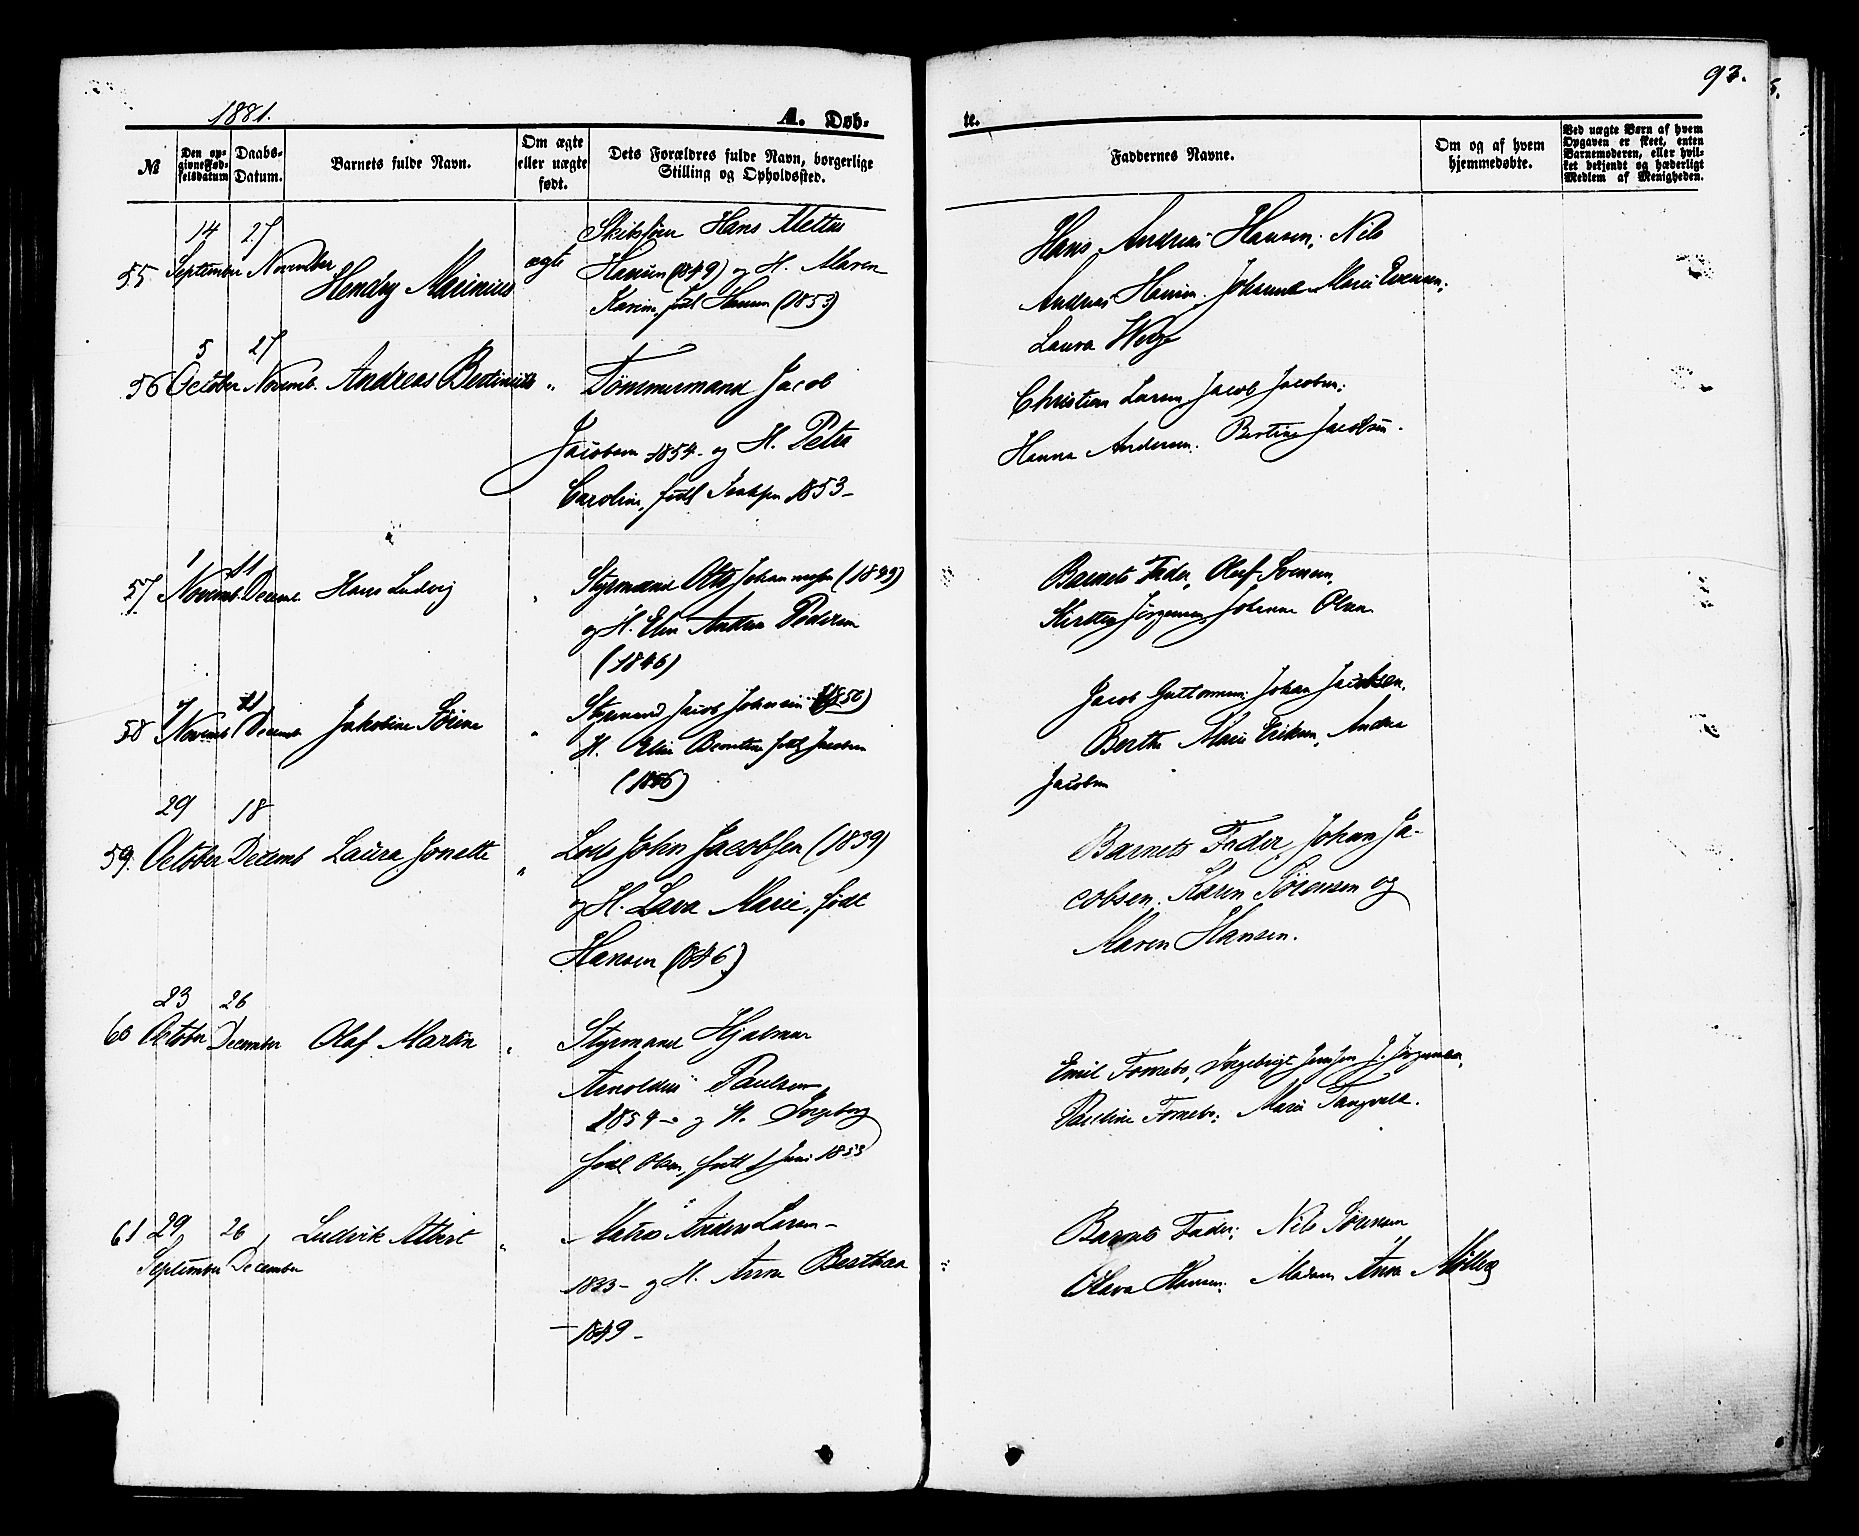 93.
1881.
A. Døb-
te.
№
Den op-
givne Fød-
selsdatum
Daabs-
Datum.
Barnets fulde Navn.
Om ægte
eller uægte
født.
Dets Forældres fulde Navn, borgerlige
Stilling og Opholdssted.
Faddernes Navne.
Om og af hvem
hjemmedøbte.
Ved uægte Børn af hvem
Opgaven er skeet, enten
Barnemoderen, eller hvil-
ket bekjendt og hæderligt
Medlem af Menigheden.
14 27
55 September November Hendry Marinius ægte
Hans
Hansen (1849) og H. Maren
Karine, født Hansen (1853)
Hans Andreas Hansen; Nils
Andreas Hansen, Johanne Marie Evensen;
Laura
5 27
56 October Novemb. Andreas Bertinius "
Tømmermand Jacob
Jacobsen 1854- og H. Petra
Caroline, født 1853-
Christian Larsen, Jacob Jacobsen;
Hanna Andersen. Bertine Jacobsen.
1 11
57 Novemb. Decemb. Hans Ludvig "
Styrmand Otto Johannesen (1849)
og H. Elen Andrea Pedersen
(1846)
Barnets Fader, Oluf Svensen,
Jørgensen, Johanne Olsen
7 11
58 Novemb Decemb Jakobine Sørine "
Styrmand Jacob Johnsen (1850)
H. Elen født Jacobsen
Jacob Guttormsen; Johan Jacobsen,
Berthe Marie Eriksen, Andrea
Jacobsen
29 18
59. October Decemb Laura Jonette "
Lods John Jacobsen (1839)
og H. Lava Marie, født
Hansen (1846)
Barnets Fader, Johan Ja-
cobsen, Karen Sørensen og
Maren Hansen.
23 26
60 October December Olaf Martin "
Styrmand Hjalmar
Paulsen
1854- og H. Ingeborg
født Olsen, født 1 Juni 1853
Emil Fornebo, Ingebrigt Jensen, J. Jørgensen,
Pauline Fornebo; Marie Tangvald.
61 29 26 Ludvik Albert "
September December
Matros Anders Larsen-
1833- og H. Anne Berthea
-1849-
Barnets Fader; Nils Sørensen
Olava Hansen; Madam Anna Møller